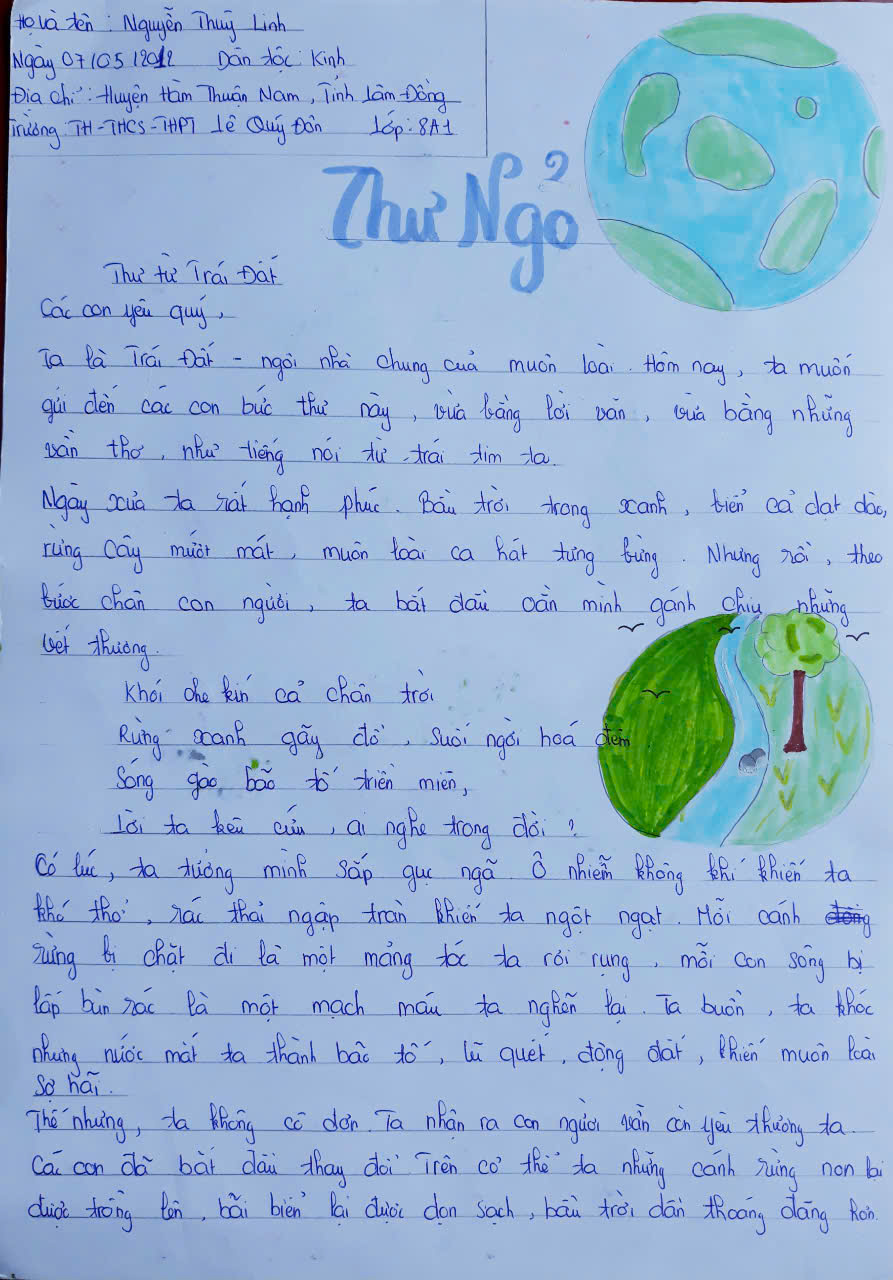 Họ và tên : Nguyễn Thuỳ Linh
Ngày 07/05/2012 Dân tộc : Kinh
Địa chỉ : Huyện Hàm Thuận Nam, Tỉnh Lâm Đồng
Trường TH-THCS-THPT Lê Quý Đôn Lớp : 8A1
Thư Ngỏ
Thư từ Trái Đất
Các con yêu quý,
Ta là Trái Đất - ngôi nhà chung của muôn loài. Hôm nay, ta muốn
gửi đến các con bức thư này, vừa bằng lời văn, vừa bằng những
vần thơ, như tiếng nói từ trái tim ta.
Ngày xưa ta rất hạnh phúc. Bầu trời trong xanh, biển cả dạt dào,
rừng cây mướt mát, muôn loài ca hát tưng bừng. Nhưng rồi, theo
bước chân con người, ta bắt đầu oằn mình gánh chịu những
vết thương.
Khói che kín cả chân trời
Rừng xanh gãy đổ, suối ngời hoá đen
Sóng gào bão tố triền miên,
Lời ta kêu cứu, ai nghe trong đời ?
Có lúc, ta tưởng mình sắp gục ngã. Ô nhiễm không khí khiến ta
khó thở, rác thải ngập tràn khiến ta ngột ngạt. Mỗi cánh
rừng bị chặt đi là một mảng tóc ta rơi rụng, mỗi con sông bị
lấp bùn rác là một mạch máu ta nghẽn lại. Ta buồn, ta khóc
nhưng nước mắt ta thành bão tố, lũ quét, động đất, khiến muôn loài
sợ hãi.
Thế nhưng, ta không cô đơn. Ta nhận ra con người vẫn còn yêu thương ta.
Các con đã bắt đầu thay đổi. Trên cơ thể ta những cánh rừng non lại
được trồng lên, bãi biển lại được dọn sạch, bầu trời dần thoáng đãng hơn.